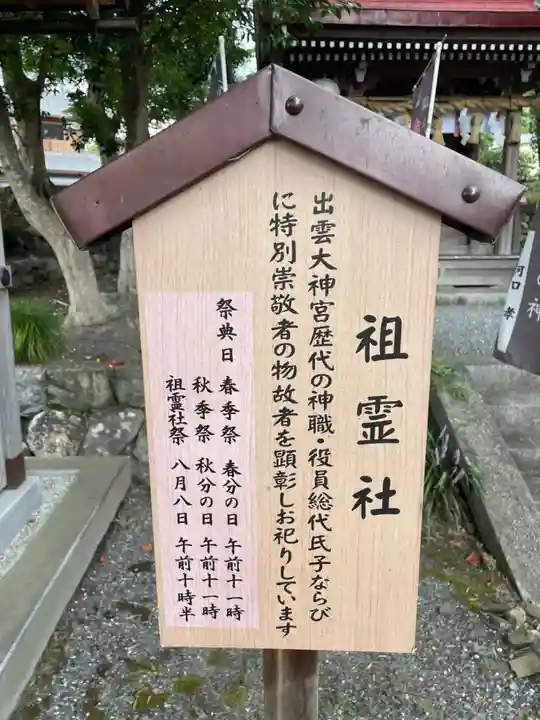 祖霊社
出雲大神宮歴代の神職・役員総代氏子ならび
に特別崇敬者の物故者を顕彰しお祀りしています
祭典日 春季祭 春分の日 午前十一時
秋季祭 秋分の日 午前十一時
祖霊社祭 八月八日 午前十時半
河口 孝
の神